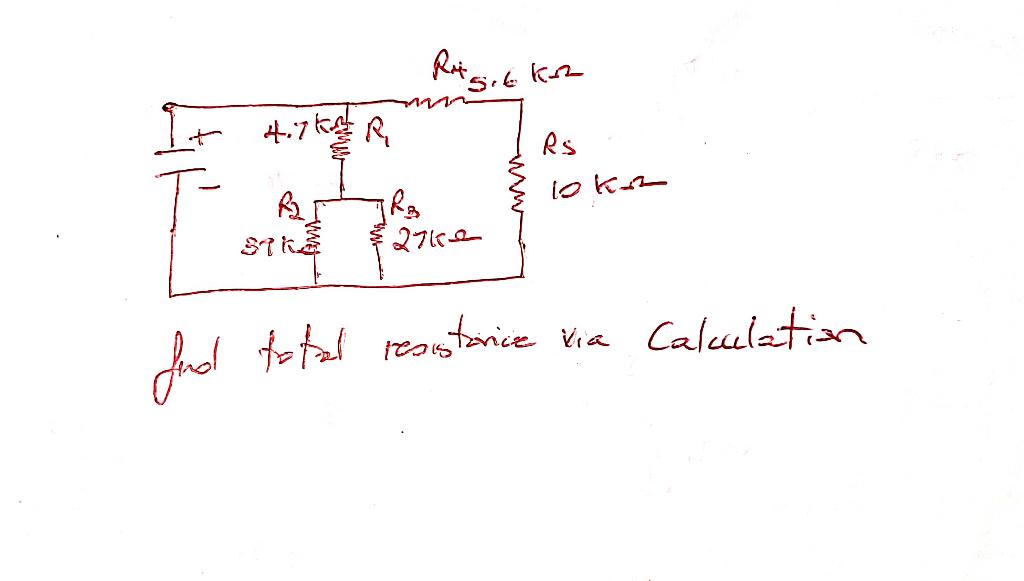 R4 5.6 KΩ
+ 4.7KΩ R1
R5
10 KΩ
-
R2 R3
27KΩ
find total resistance via Calculation